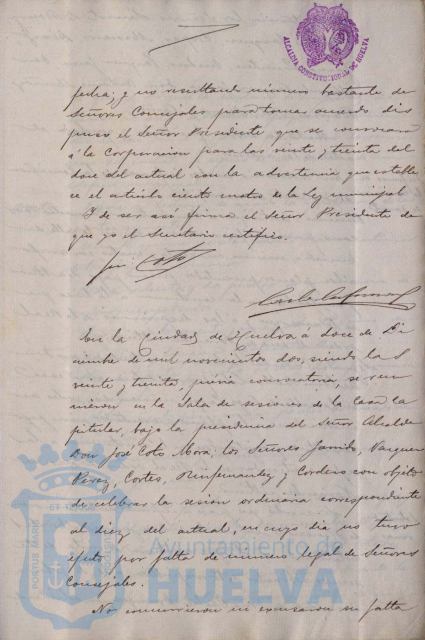 ALCALDIA CONSTITUCIONAL DE HUELVA
fecha; y no resultando número bastante de
Señores Concejales para tomar acuerdo dis
puso el Señor Presidente que se convocara
á la Corporacion para las veinte y treinta del
doce del actual con la advertencia que estable
ce el artículo ciento cuatro de la Ley municipal
Y de ser así firma el Señor Presidente de
que yo el Secretario certifico.
Coto
En la Ciudad de Huelva á doce de Di
ciembre de mil novecientos dos, siendo las
veinte y treinta, previa convocatoria, se reu
nieron en la Sala de sesiones de la Casa Ca
pitular, bajo la presidencia del Señor Alcalde
Don José Coto Mora; los Señores Garrido, Vazquez
Perez, Cortes, y Cordero con objeto
de celebrar la sesion ordinaria correspondiente
al diez del actual, en cuyo dia no tuvo
efecto por falta de número legal de Señores
Concejales.
No concurrieron ni excusaron su falta
PORTUS MARIS
Ayuntamiento de
HUELVA